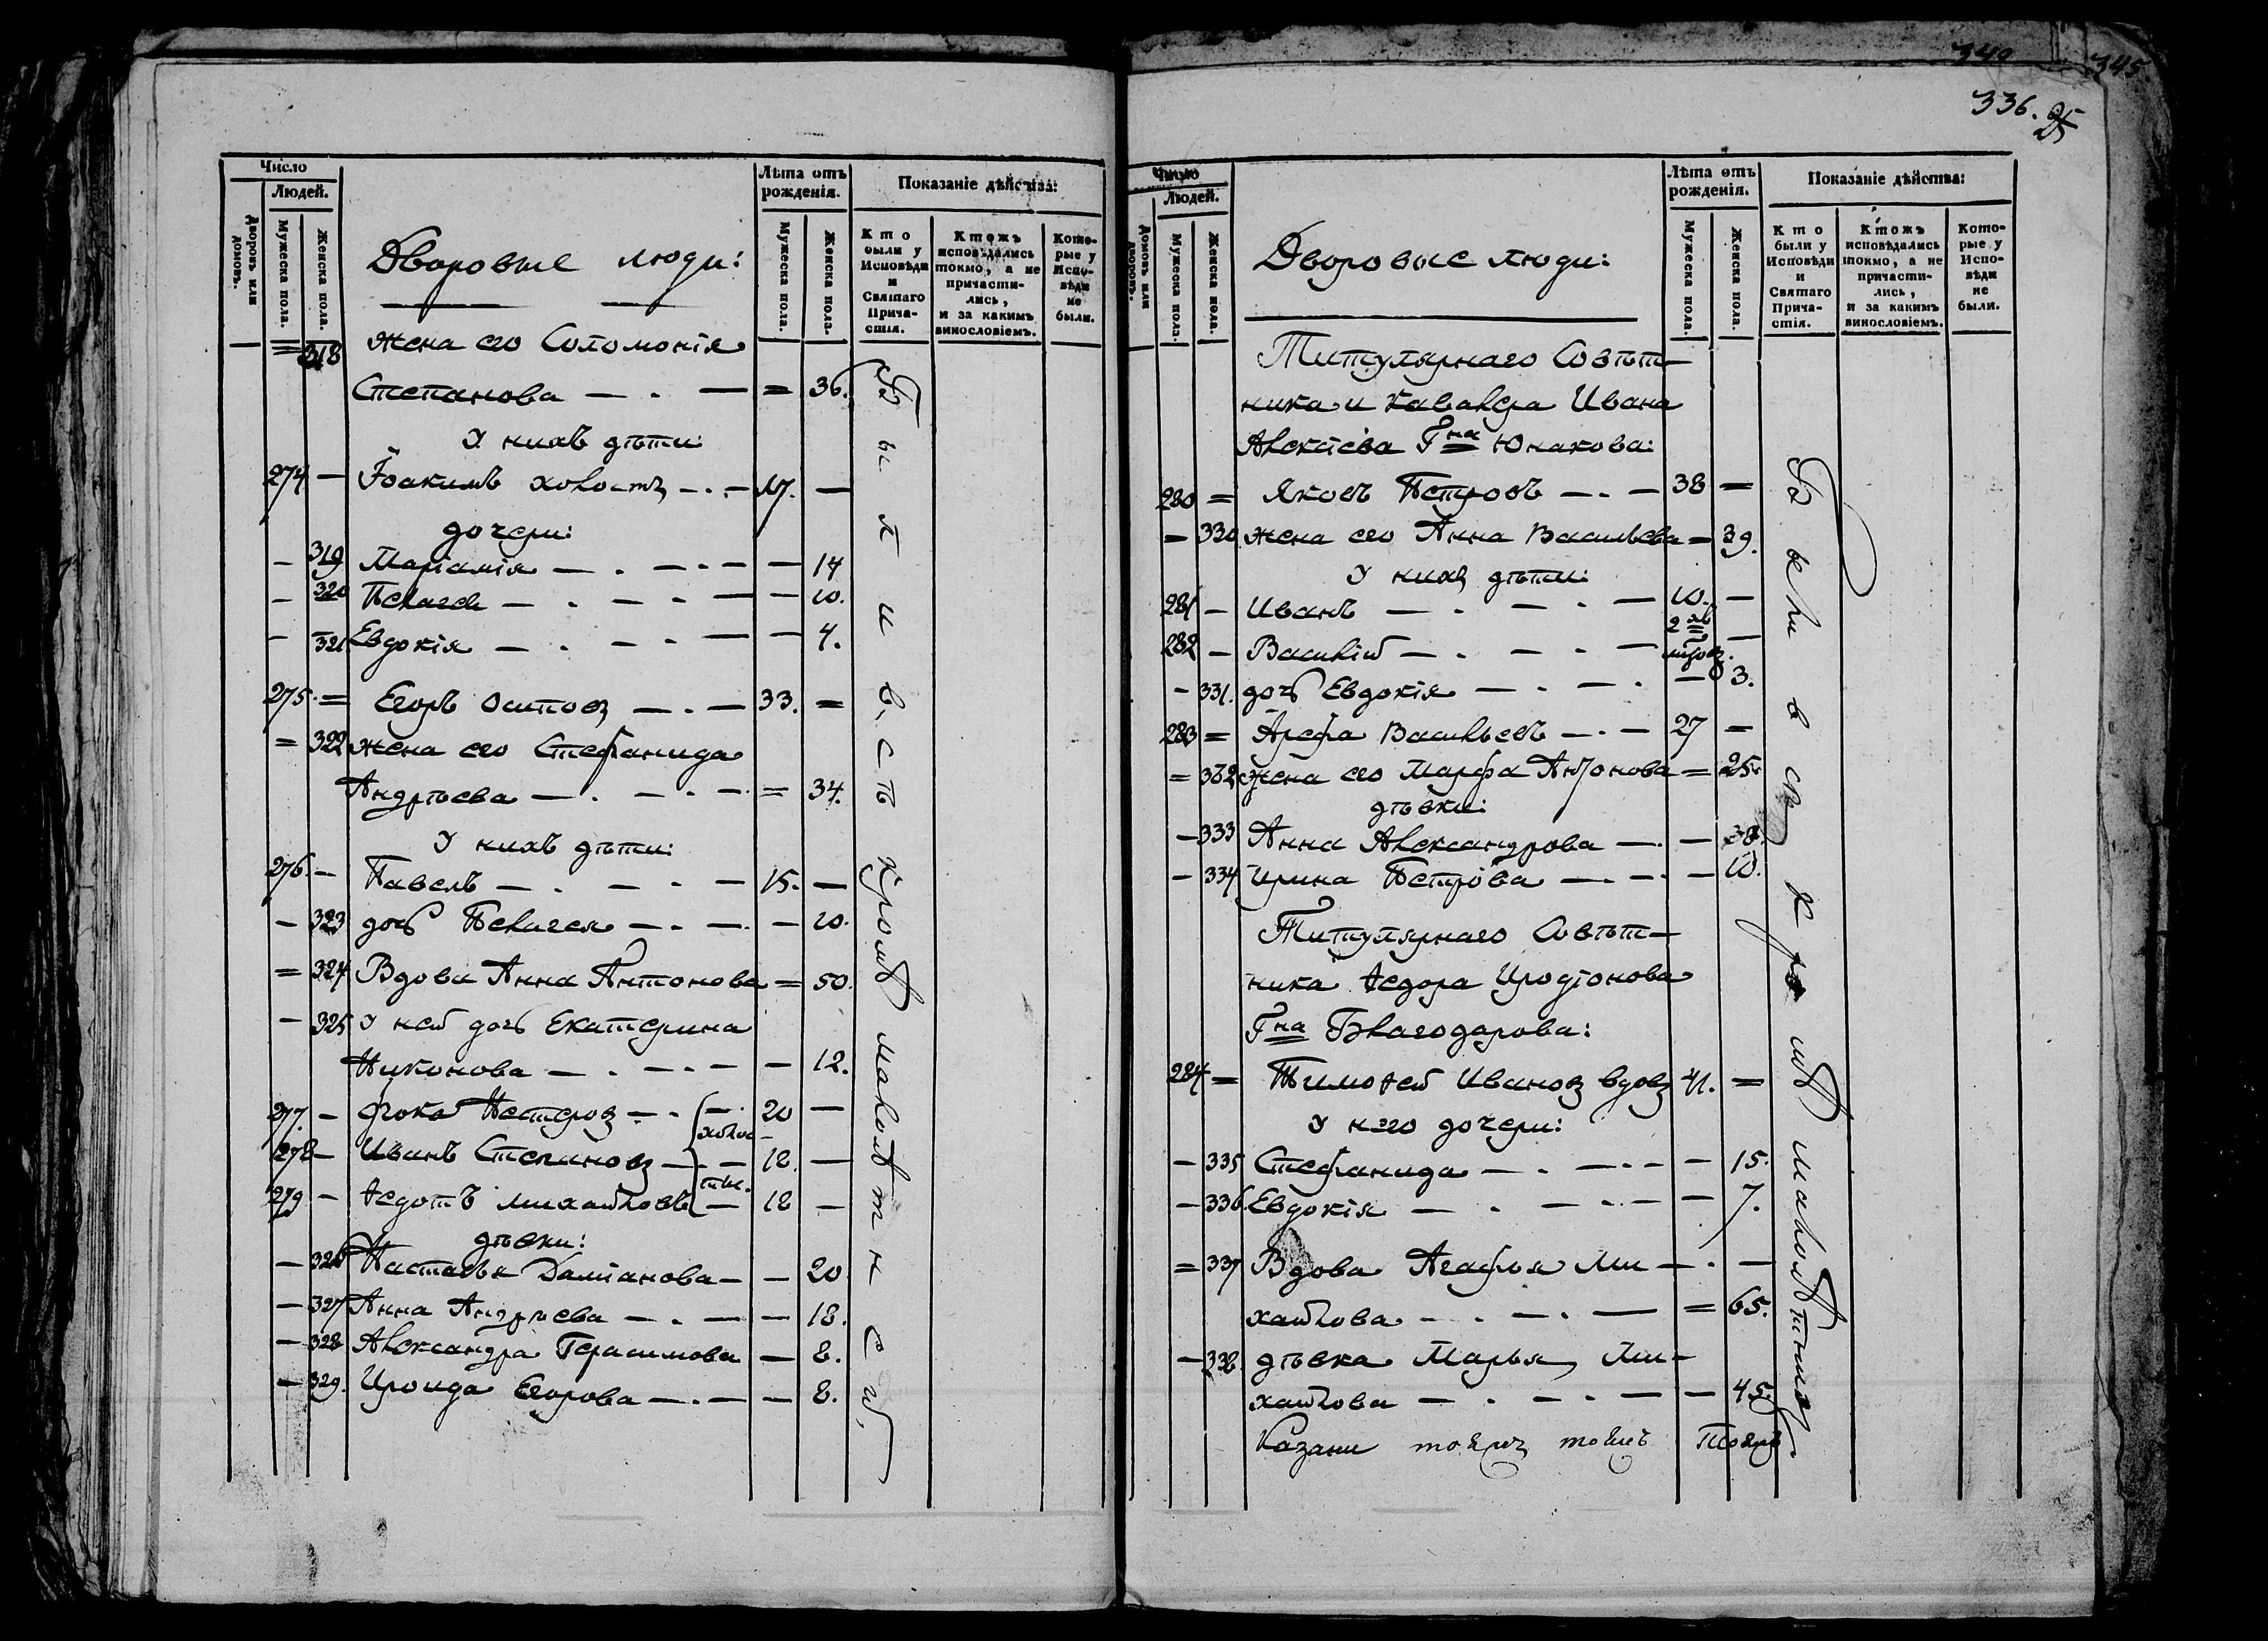 349
345.
336. 25
Число
Людей.
Дворовъ или домовъ.
Мужеска пола.
Женска пола.
Дворовые люди:
Лѣта отъ рожденія.
Мужеска пола.
Женска пола.
Показаніе дѣйства:
Кто были у Исповѣди и Святаго Прича-стія.
Ктожъ исповѣдались токмо, а не причасти-лись, и за какимъ винословіемъ.
Кото-рые у Испо-вѣди не были.
= 318 жена его Соломонія
Степанова — . — = 36.
У нихъ дѣти:
274 — Іоакимъ холостъ — . — 17. —
дочери:
— 319 Маріамія — . — . — — 14
— 320 Пелагея — . — . — — 10.
— 321 Евдокія — . — . — — 4.
275. = Егоръ Осиповъ — . — 33. =
= 322 жена его Стефанида
Андрѣева — . — . — = 34.
У нихъ дѣти:
276. — Павелъ — . — . — 15. —
— 323 дочь Пелагея — . — . — 10.
= 324 Вдова Анна Антонова = 50.
— 325 У ней дочь Екатерина
Никонова — . — . — — 12.
277. — Фока Нестеровъ — . — 20 —
холос-
278 — Иванъ Степановъ — . — 18. —
тые.
279. — Ѳедотъ Михайловъ — 18 —
дѣвки:
— 326 Настасья Даміанова — — 20
— 327 Анна Андрѣева — . — — 18.
— 328 Александра Герасимова — 8.
— 329. Ироида Егорова — . — — 8.
Были всѣ кромѣ малолѣтнеи,
Число
Людей.
Домовъ или дворовъ.
Мужеска пола.
Женска пола.
Дворовые люди:
Лѣта отъ рожденія.
Мужеска пола.
Женска пола.
Показаніе дѣйства:
Кто были у Исповѣди и Святаго Прича-стія.
Ктожъ исповѣдались токмо, а не причасти-лись, и за какимъ винословіемъ.
Кото-рые у Испо-вѣди не были.
Титулярнаго Совѣт-
ника и Кавалера Ивана
Алексіева Гна Юнакова:
280 = Яковъ Петровъ — . — 38 =
= 330 жена его Анна Васильева = 39.
У нихъ дѣти:
281 — Иванъ — . — . — 10. —
2
282 — Василій — . — . — —
— 331. дочь Евдокія — . — . — 3.
283 = Арефа Васильевъ — . — 27 =
= 332 жена его Марфа Антонова = 25.
дѣвки:
— 333 Анна Александрова — . — 38.
— 334 Ирина Петрова — . — . — 10.
Титулярнаго Совѣт-
ника Ѳедора Иродіонова
Гна Благодарова:
284 = Тимоѳей Ивановъ вдовъ 41. =
У него дочери:
— 335 Стефанида — . — . — — 15.
— 336. Евдокія — . — . — — 7.
= 337 Вдова Агафія Ми- . —
хайлова — . — . — = 65.
— 338. дѣвка Марья Ми-
хайлова — . — . — — 45.
Были всѣ кромѣ малолѣтнихъ